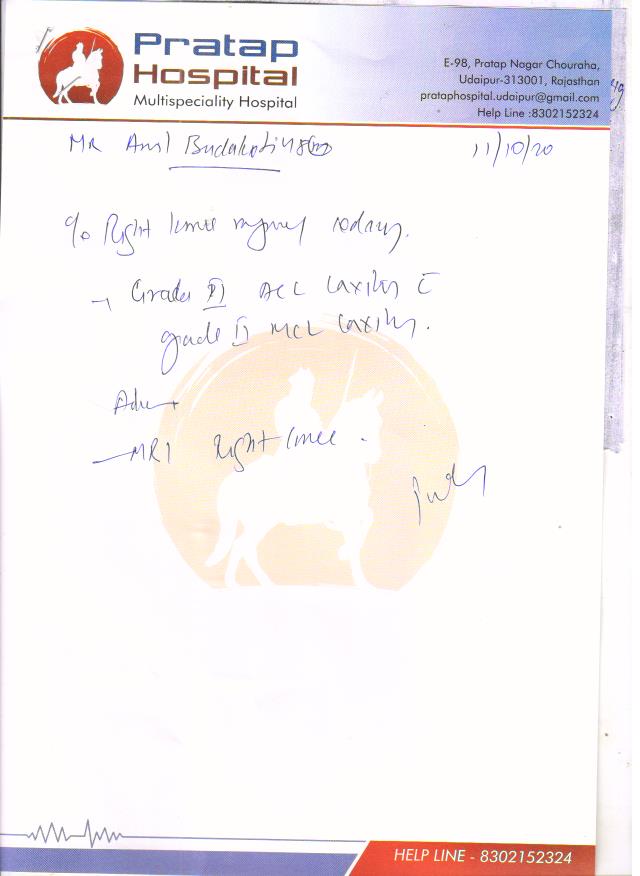 Pratap
Hospital
Multispeciality Hospital
E-98, Pratap Nagar Chouraha,
Udaipur-313001, Rajasthan
prataphospital.udaipur@gmail.com
Help Line :8302152324
MR Anil Budakoti 11/10/20
c/o Right knee injury
→ Grade II ACC Laxity c
grade II MCL Laxity.
Adv
- MRI Right knee.
HELP LINE - 8302152324